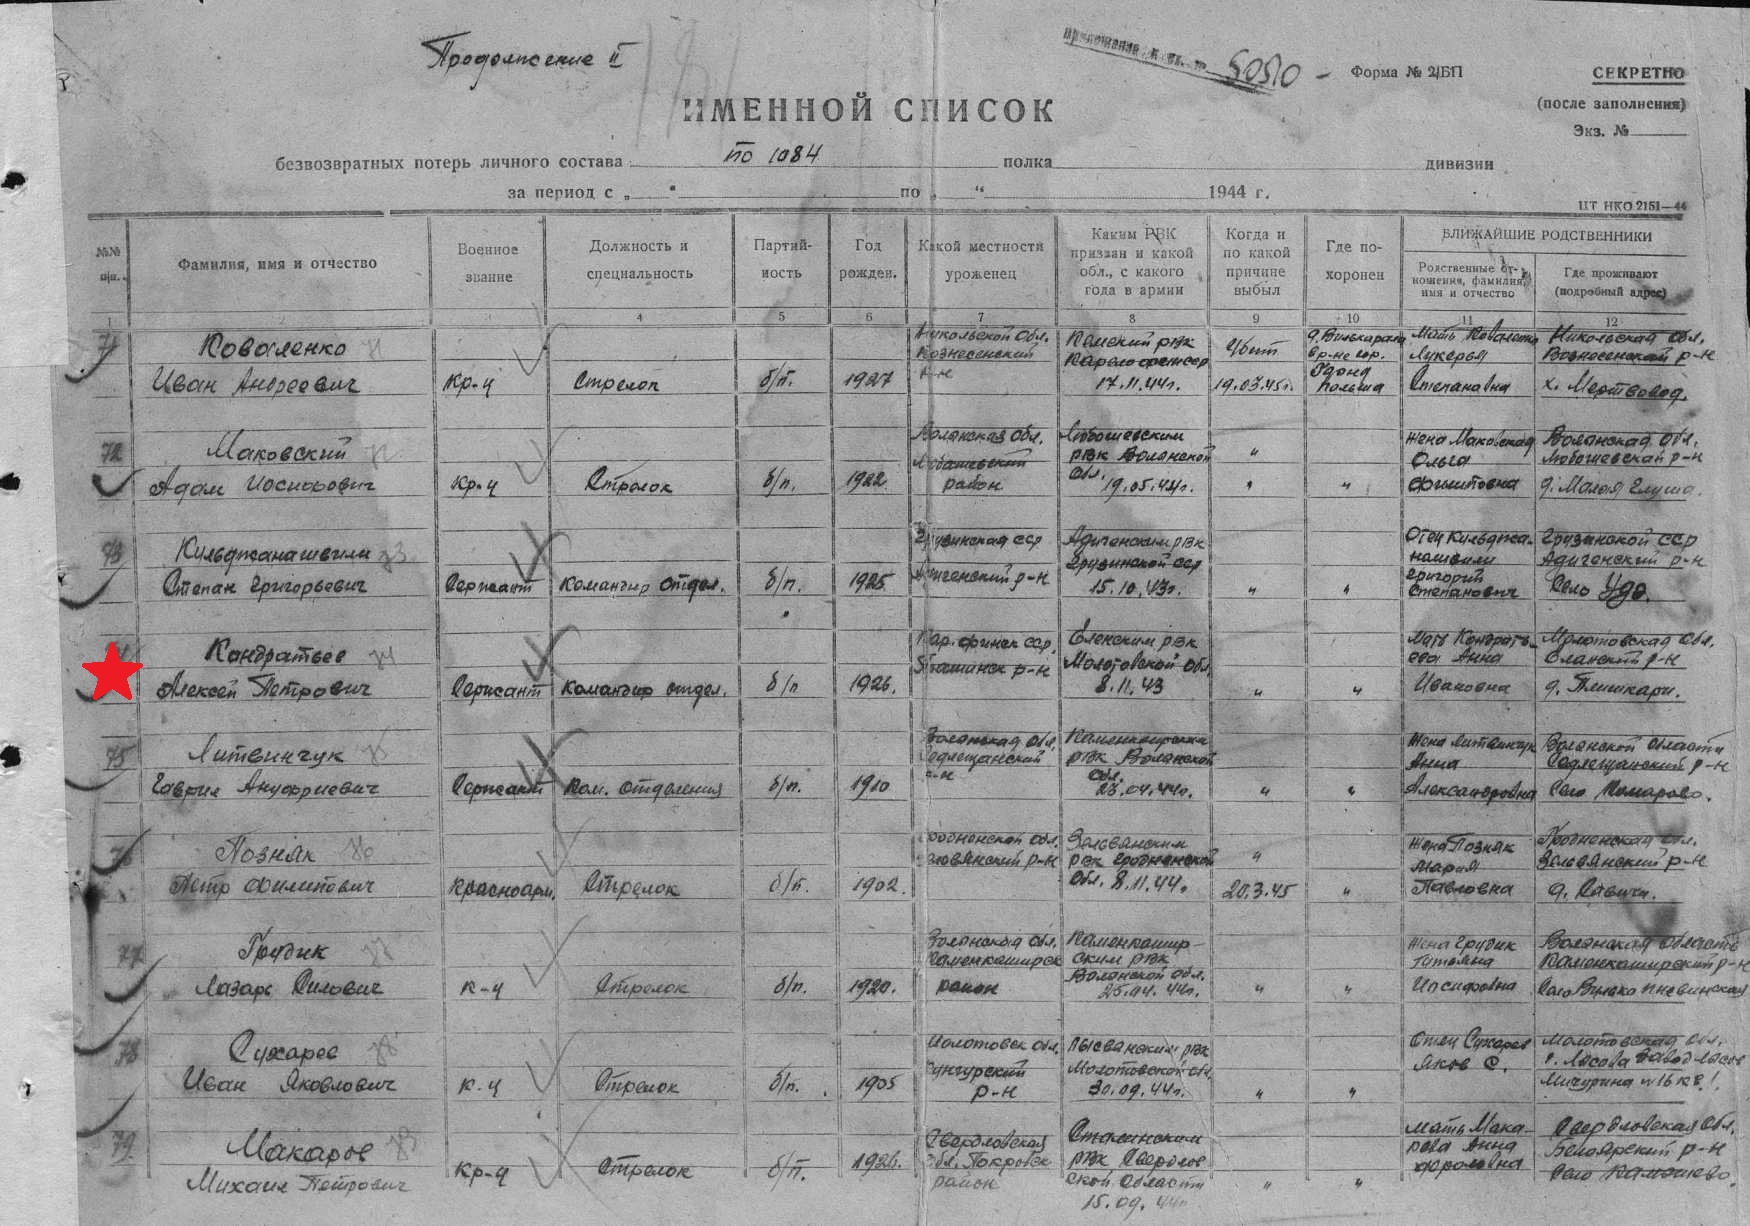 Продолжение II
приложение к вх. № 5050 -
Форма № 2/БП
СЕКРЕТНО
(после заполнения)
Экз. №
ИМЕННОЙ СПИСОК
безвозвратных потерь личного состава по 1084 полка дивизии
за период с „ “ по „ “ 1944 г.
ЦТ НКО 2151—44
№№ п/п.
Фамилия, имя и отчество
Военное звание
Должность и специальность
Партий-ность
Год рожден.
Какой местности уроженец
Каким РВК призван и какой обл., с какого года в армии
Когда и по какой причине выбыл
Где по-хоронен
БЛИЖАЙШИЕ РОДСТВЕННИКИ
Родственные от-ношения, фамилия, имя и отчество
Где проживают (подробный адрес)
1 2 3 4 5 6 7 8 9 10 11 12
71 Коваленко Иван Андреевич
Кр-ц Стрелок б/п. 1927
Никольской обл. Вознесенский р-н
Кемский рвк 17.11.44г.
Убит 19.03.45г.
Польша
Мать Коваленко Лукерья Степановна
Никольская обл. Вознесенской р-н х. Мертвовод.
72 Маковский 72 Адам Иосифович
Кр-ц Стрелок б/п. 1922
Волынская обл. Любашевский район
Любошевским рвк Волынской обл. 19.05.44г.
" " "
Жена Маковская Ольга Филиповна
Волынская обл. Любошевская р-н д. Малая Глуша.
73 Кильджанашвили 73 Степан Григорьевич
Сержант Командир отдел. б/п. 1925
Грузинская сср Адигенский р-н
Адигенским рвк Грузинской сср 15.10.43г.
" "
Отец Кильджа-нашвили Григорий Степанович
Грузинской сср Адигенский р-н Село Удэ.
Кондратьев 74 Алексей Петрович
Сержант Командир отдел. б/п 1926.
Кар. финск сср, р-н
Еленским рвк Молотовской обл. 8.11.43
" "
Мать Кондрать-ева Анна Ивановна
Молотовская обл. Еланский р-н д. Плишкари.
75 Литвинчук 75 Гаврил Ануфриевич
Сержант Ком. отделения б/п. 1910
Волынская обл. Седлещанский р-н
Каменкаширским рвк Волынской обл. 23.04.44г.
" "
Жена Литвинчук Анна Александровна
Волынской области Седлещанский р-н Село Комарово.
76 Позняк 76 Петр Филипович
Красноарм. Стрелок б/п. 1902.
Гродненской обл. Зельвянский р-н
Зельвянским рвк Гродненской обл. 8.11.44г.
" 20.3.45 "
Жена Позняк Мария Павловна
Гродненская обл. Зельвянский р-н д. Савичи.
77 Грудик 77 Лазарь Силович
К-ц Стрелок б/п. 1920.
Волынская обл. Каменкаширск район
Каменкашир-ским рвк Волынской обл. 25.04.44г.
" "
Жена Грудик Татьяна Иосифовна
Волынская область Каменкаширский р-н
78 Сухарев 78 Иван Яковлович
К-ц Стрелок б/п. 1905
Молотовск обл. Кунгурский р-н
Лысванским рвк Молотовской обл. 30.09.44г.
" "
Отец Сухарев Яков С.
Молотовская обл. Мичурина №16 кв.1.
79 Макаров 79 Михаил Петрович
Кр-ц Стрелок б/п. 1926.
Свердловская обл. Покровск район
Сталинским рвк Свердлов ской области 15.09.44г
" "
Мать Мака-рова Анна Фроловна
Свердловская обл. Белоярский р-н Село Камышево.